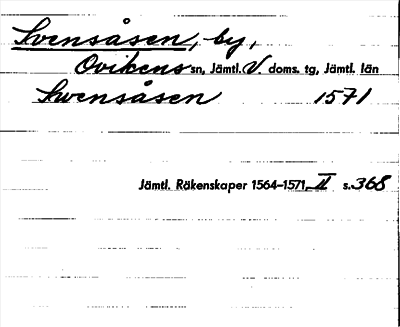 Svensåsen, by,
Ovikens sn, Jämtl. V. doms. tg, Jämtl. län
Swensåsen 1571
Jämtl. Räkenskaper 1564–1571, II s. 368